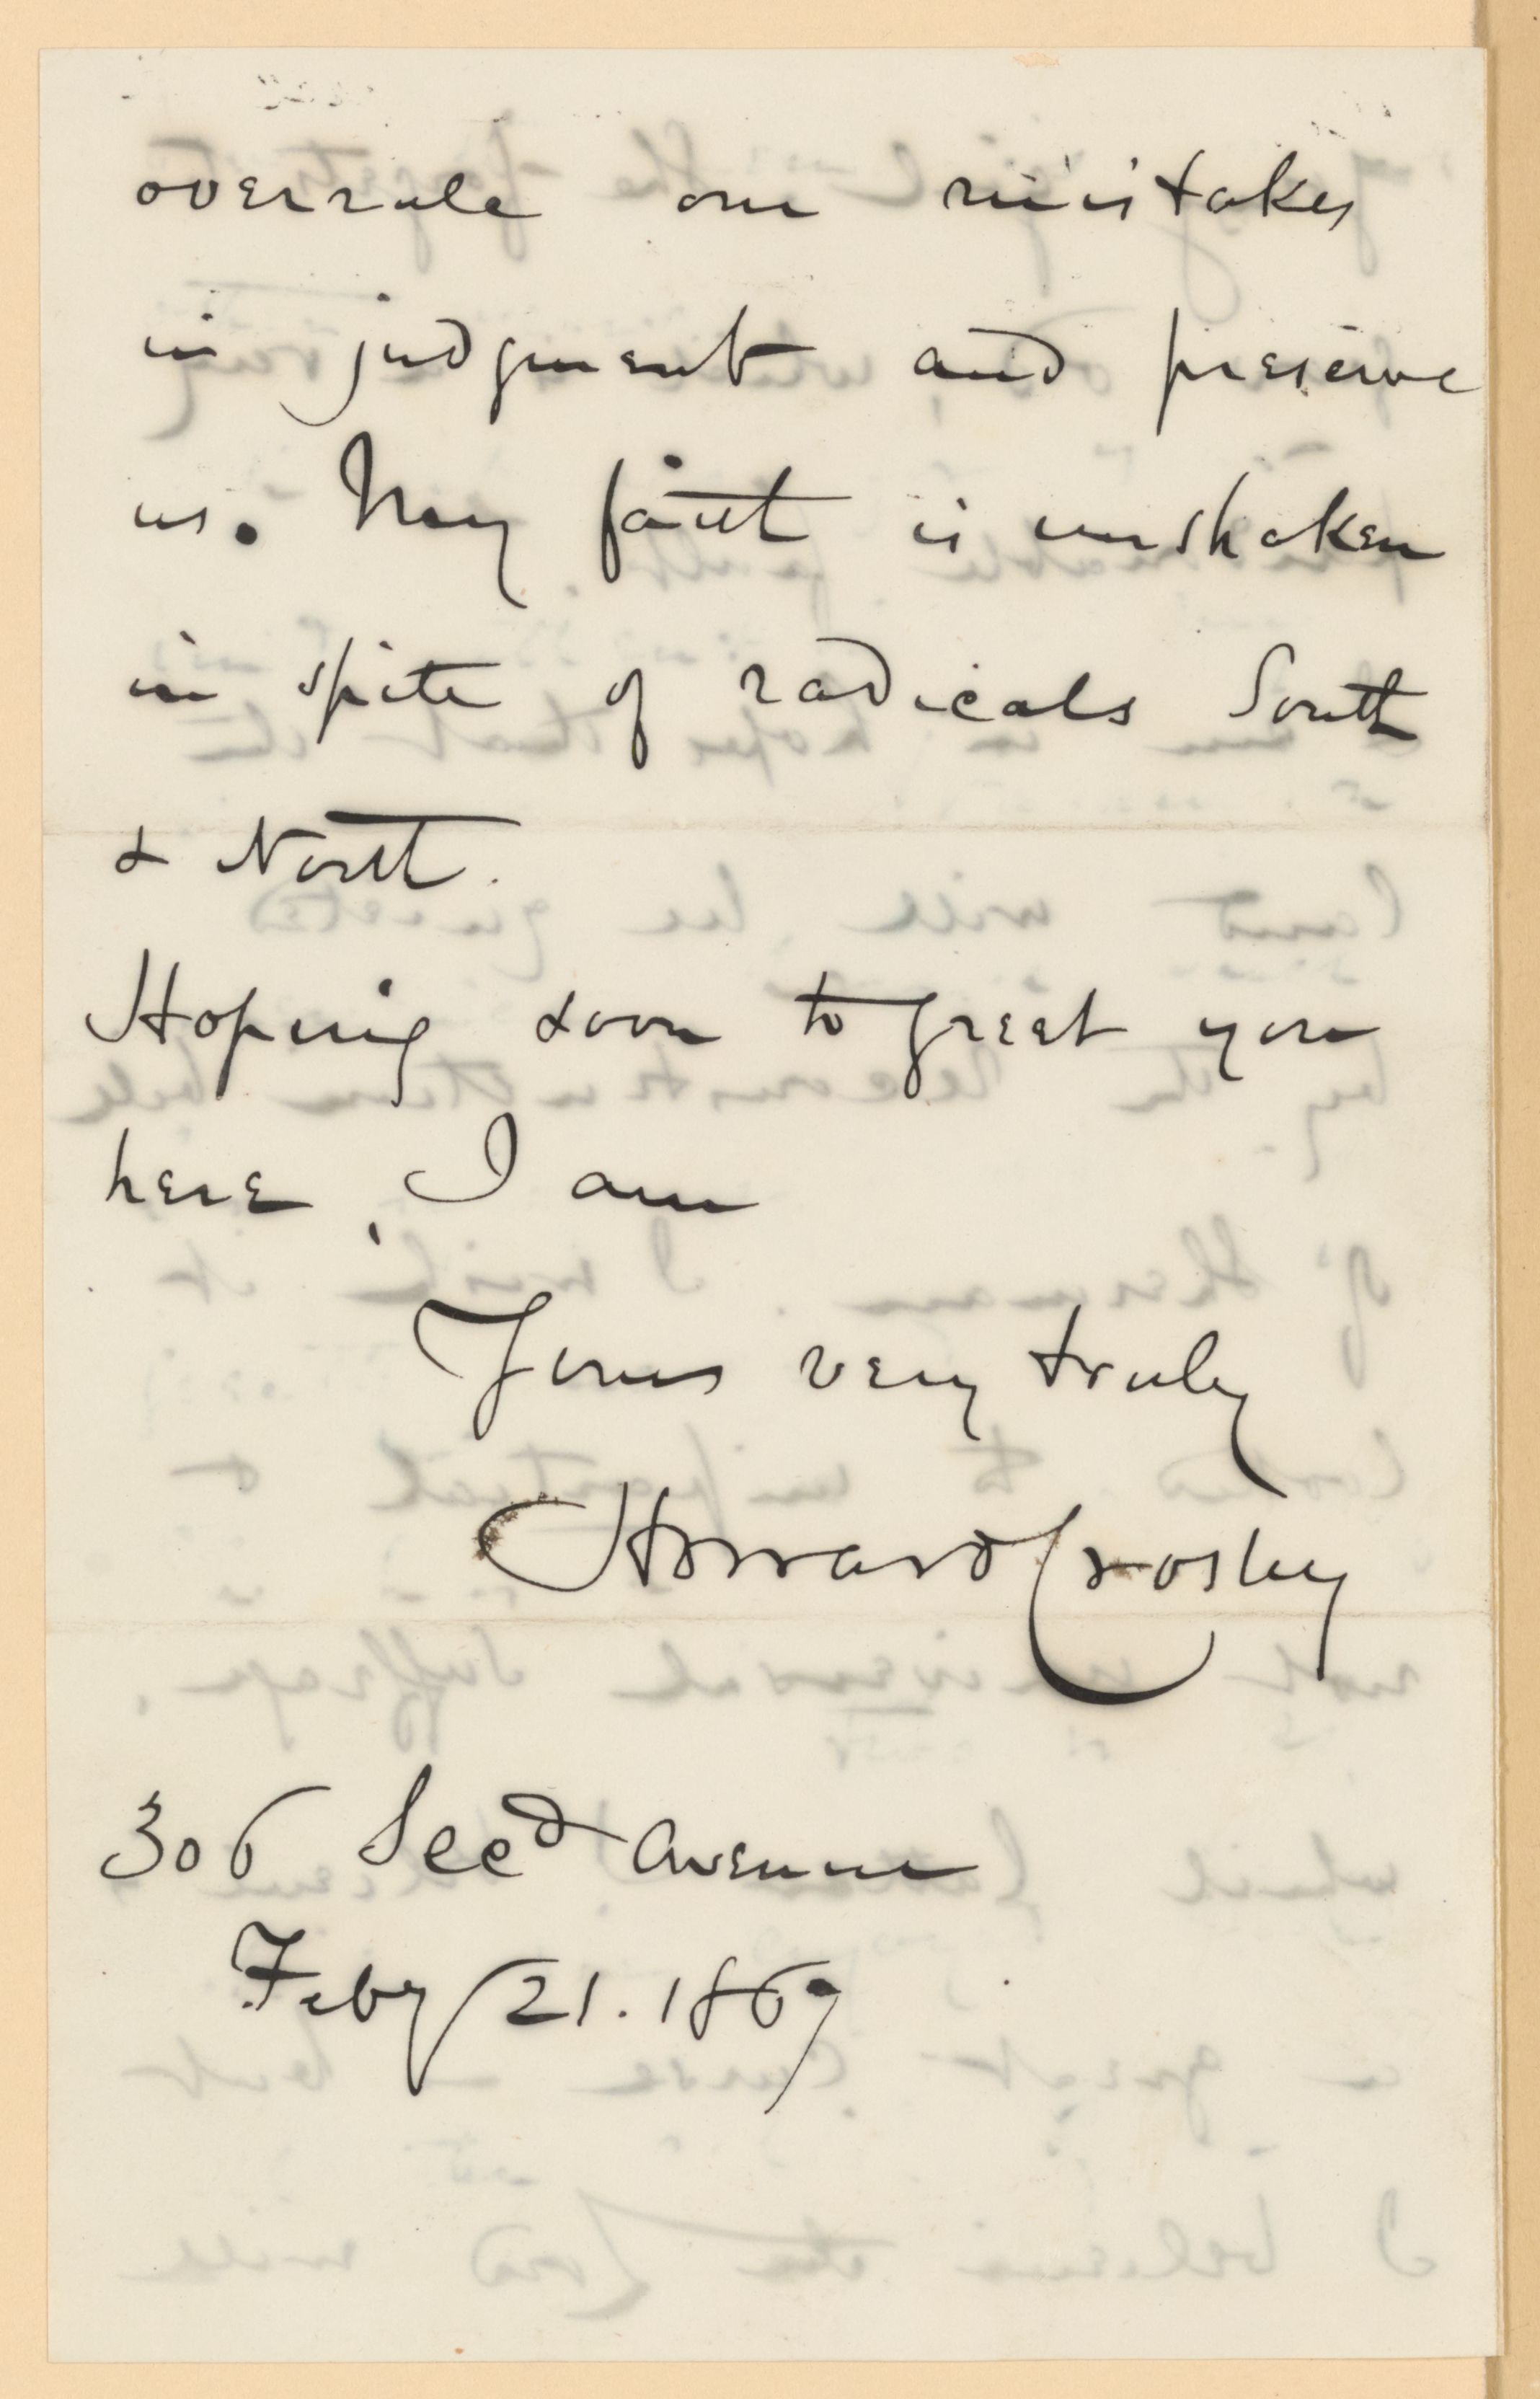 overrule our mistakes
in judgment and preserve
us. My faith is unshaken
in spite of radicals South
& North.
Hoping soon to greet you
here, I am
Yours very truly
Howard Crosby
306 Secd Avenue
Feby 21. 1867